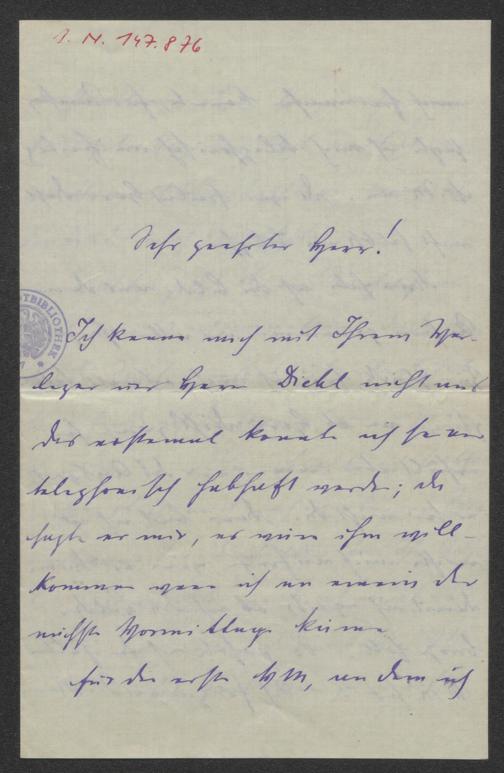 J. N. 147.876
Sehr geehrter Herr!
BIBLIOTHEK
Ich kenne mich mit Ihrem Ver-
leger Herrn Dickl nicht aus
Das erstemal konnte ich seiner
telephonisch habhaft werden; da
sagte er mir, es wäre ihm will-
kommen wenn ich an einem der
nächsten Vormittage käme
Für den ersten VM, an dem ich